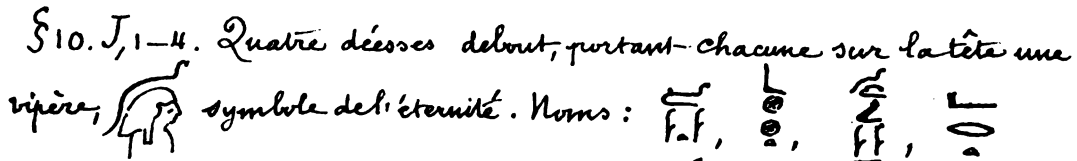 §10. J, 1–4. Quatre déesses debout, portant chacune sur la tête une
vipère, symbole de l'éternité. Noms : , , ,